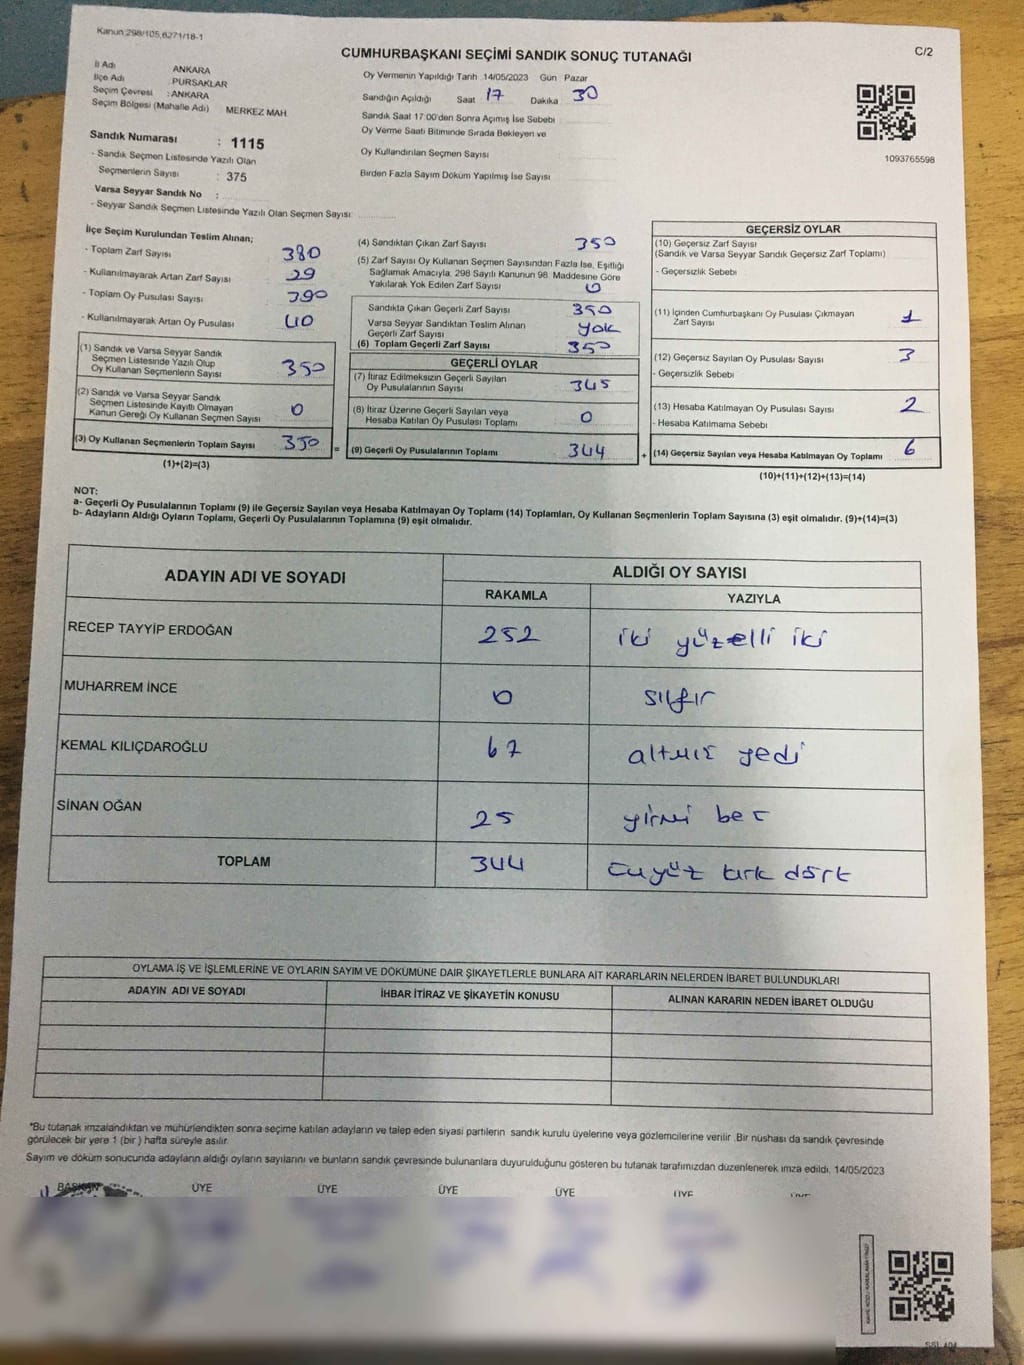 Kanun:298/105,6271/18-1
CUMHURBAŞKANI SEÇİMİ SANDIK SONUÇ TUTANAĞI
C/2
İl Adı : ANKARA
İlçe Adı : PURSAKLAR
Seçim Çevresi : ANKARA
Seçim Bölgesi (Mahalle Adı) MERKEZ MAH
Sandık Numarası : 1115
- Sandık Seçmen Listesinde Yazılı Olan
Seçmenlerin Sayısı : 375
Varsa Seyyar Sandık No :
- Seyyar Sandık Seçmen Listesinde Yazılı Olan Seçmen Sayısı:
Oy Vermenin Yapıldığı Tarih 14/05/2023 Gün Pazar
Sandığın Açıldığı Saat 17 Dakika 30
Sandık Saat 17:00'den Sonra Açımış İse Sebebi
Oy Verme Saati Bitiminde Sırada Bekleyen ve
Oy Kullandırılan Seçmen Sayısı
Birden Fazla Sayım Döküm Yapılmış İse Sayısı
1093765598
İlçe Seçim Kurulundan Teslim Alınan;
- Toplam Zarf Sayısı 380
- Kullanılmayarak Artan Zarf Sayısı 29
- Toplam Oy Pusulası Sayısı 390
- Kullanılmayarak Artan Oy Pusulası 40
(1) Sandık ve Varsa Seyyar Sandık
Seçmen Listesinde Yazılı Olup
Oy Kullanan Seçmenlerin Sayısı 350
(2) Sandık ve Varsa Seyyar Sandık
Seçmen Listesinde Kayıtlı Olmayan
Kanun Gereği Oy Kullanan Seçmen Sayısı 0
(3) Oy Kullanan Seçmenlerin Toplam Sayısı 350 =
(1)+(2)=(3)
(4) Sandıktan Çıkan Zarf Sayısı 350
(5) Zarf Sayısı Oy Kullanan Seçmen Sayısından Fazla İse, Eşitliği
Sağlamak Amacıyla, 298 Sayılı Kanunun 98. Maddesine Göre
Yakılarak Yok Edilen Zarf Sayısı 0
Sandıkta Çıkan Geçerli Zarf Sayısı 350
Varsa Seyyar Sandıktan Teslim Alınan
Geçerli Zarf Sayısı yok
(6) Toplam Geçerli Zarf Sayısı 350
GEÇERLİ OYLAR
(7) İtiraz Edilmeksizin Geçerli Sayılan
Oy Pusulalarının Sayısı 345
(8) İtiraz Üzerine Geçerli Sayılan veya
Hesaba Katılan Oy Pusulası Toplamı 0
(9) Geçerli Oy Pusulalarının Toplamı 344 +
GEÇERSİZ OYLAR
(10) Geçersiz Zarf Sayısı
(Sandık ve Varsa Seyyar Sandık Geçersiz Zarf Toplamı)
- Geçersizlik Sebebi
(11) İçinden Cumhurbaşkanı Oy Pusulası Çıkmayan
Zarf Sayısı 1
(12) Geçersiz Sayılan Oy Pusulası Sayısı 3
- Geçersizlik Sebebi
(13) Hesaba Katılmayan Oy Pusulası Sayısı 2
- Hesaba Katılmama Sebebi
(14) Geçersiz Sayılan veya Hesaba Katılmayan Oy Toplamı 6
(10)+(11)+(12)+(13)=(14)
NOT:
a- Geçerli Oy Pusulalarının Toplamı (9) ile Geçersiz Sayılan veya Hesaba Katılmayan Oy Toplamı (14) Toplamları, Oy Kullanan Seçmenlerin Toplam Sayısına (3) eşit olmalıdır. (9)+(14)=(3)
b- Adayların Aldığı Oyların Toplamı, Geçerli Oy Pusulalarının Toplamına (9) eşit olmalıdır.
ADAYIN ADI VE SOYADI
ALDIĞI OY SAYISI
RAKAMLA YAZIYLA
RECEP TAYYİP ERDOĞAN 252 iki yüzelli iki
MUHARREM İNCE 0 sıfır
KEMAL KILIÇDAROĞLU 67 altmış yedi
SİNAN OĞAN 25 yirmi beş
TOPLAM 344 üçyüz kırk dört
OYLAMA İŞ VE İŞLEMLERİNE VE OYLARIN SAYIM VE DÖKÜMÜNE DAİR ŞİKAYETLERLE BUNLARA AİT KARARLARIN NELERDEN İBARET BULUNDUKLARI
ADAYIN ADI VE SOYADI İHBAR İTİRAZ VE ŞİKAYETİN KONUSU ALINAN KARARIN NEDEN İBARET OLDUĞU
*Bu tutanak imzalandıktan ve mühürlendikten sonra seçime katılan adayların ve talep eden siyasi partilerin sandık kurulu üyelerine veya gözlemcilerine verilir. Bir nüshası da sandık çevresinde
görülecek bir yere 1 (bir) hafta süreyle asılır.
Sayım ve döküm sonucunda adayların aldığı oyların sayılarını ve bunların sandık çevresinde bulunanlara duyurulduğunu gösteren bu tutanak tarafımızdan düzenlenerek imza edildi. 14/05/2023
BAŞKAN ÜYE ÜYE ÜYE ÜYE ÜYE